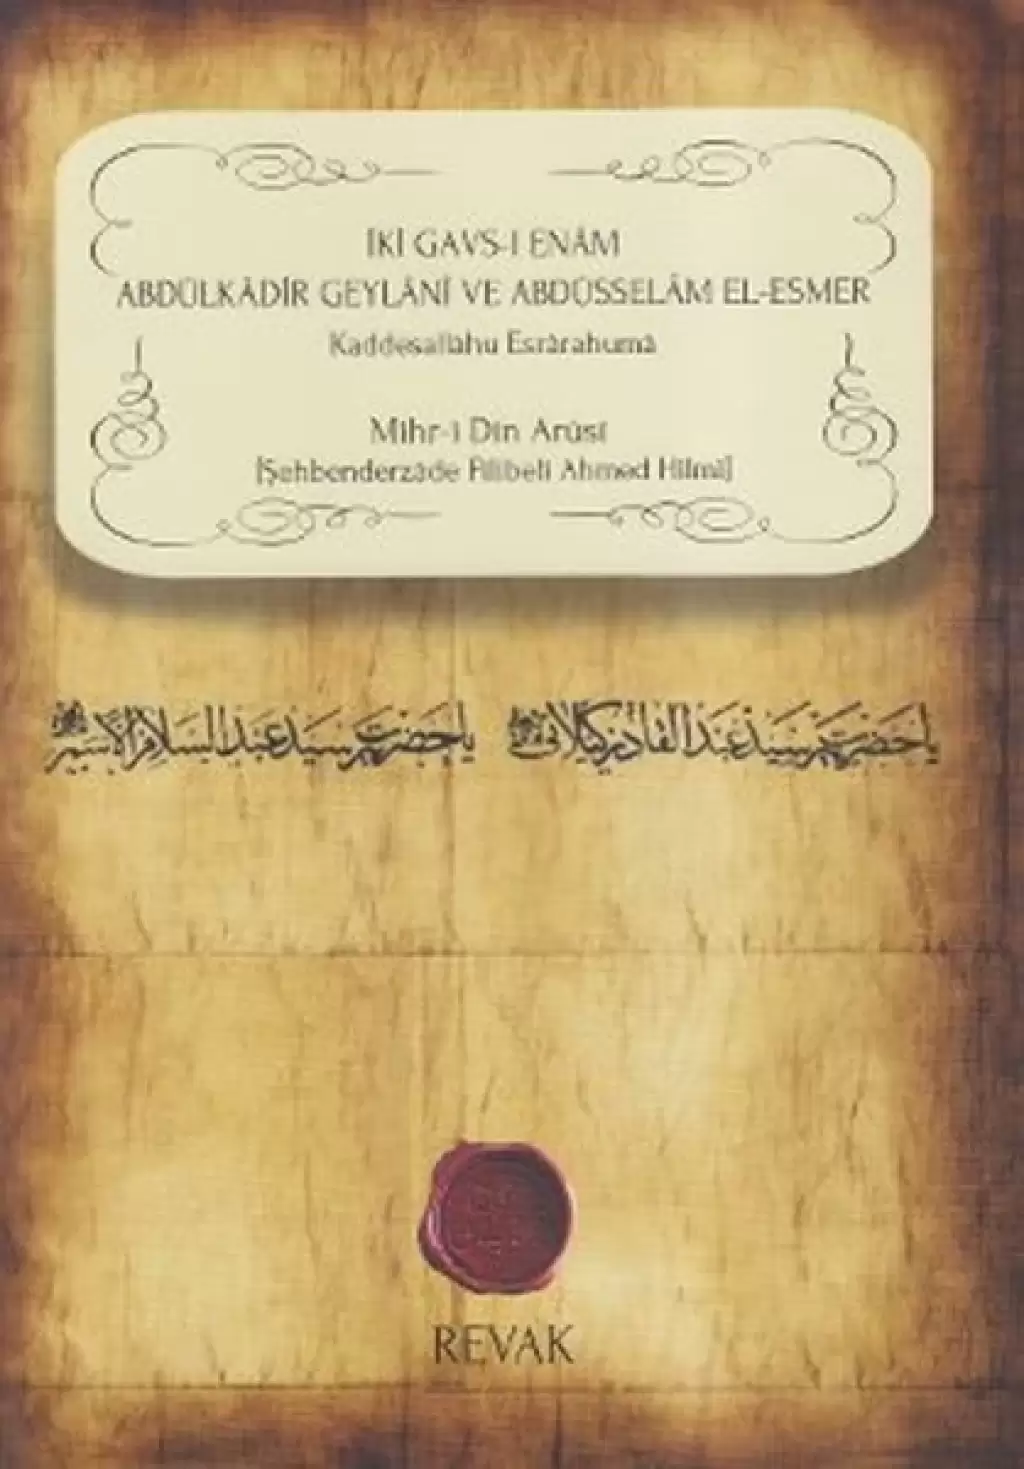 İKİ GAVS-I ENÂM
ABDÜLKÂDİR GEYLÂNÎ VE ABDÜSSELÂM EL-ESMER
Kaddesallâhu Esrârahumâ
Mihr-i Din Arûsî
[Şehbenderzâde Filibeli Ahmed Hilmi]
یا حضرت سید عبد القادر کیلانی
یا حضرت سید عبد السلام الاسمر
REVAK